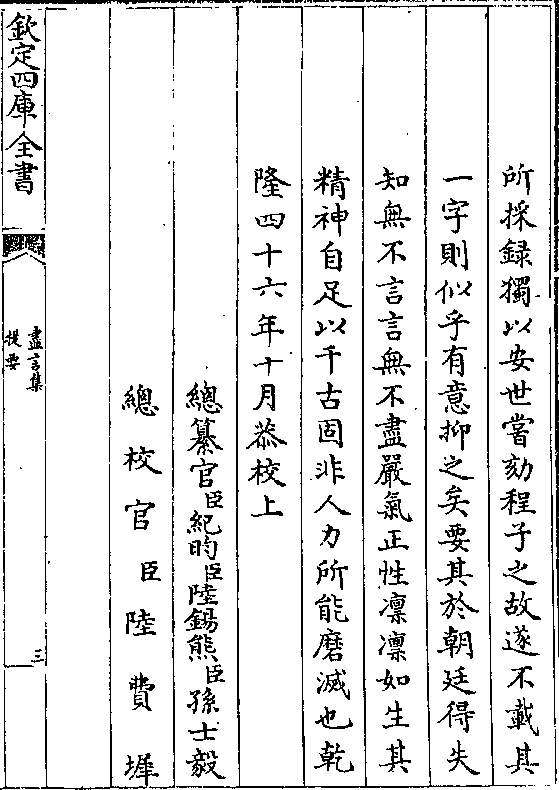 所採録獨以安世嘗劾程子之故遂不載其
一字則似乎有意抑之矣要其於朝廷得失
知無不言言無不盡嚴氣正性凛凛如生其
精神自足以千古固非人力所能磨滅也乾
隆四十六年十月恭校上
總纂官臣紀昀臣陸錫熊臣孫士毅
總校官臣陸費墀
欽定四庫全書
盡言集
提要
三